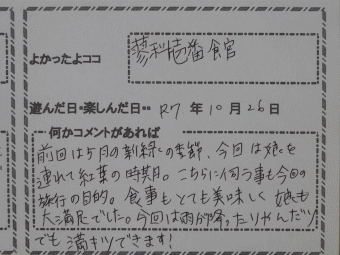 よかったよココ
蓼科壱番館
遊んだ日・楽しんだ日・・ R7 年 10 月 26 日
何かコメントがあれば
前回は5月の新緑の季節、今回は娘を
連れて紅葉の時期。こちらに伺う事も今回の
旅行の目的。食事もとても美味しく娘も
大満足でした。今回は雨が降ったりやんだり
でも満キツできます!